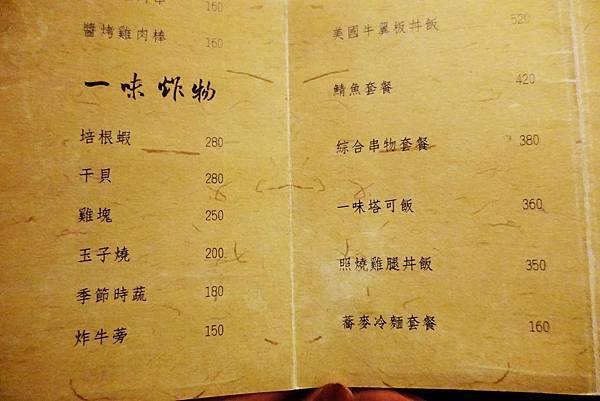 160
醬烤雞肉棒 160
一味炸物
培根蝦 280
干貝 280
雞塊 250
玉子燒 200
季節時蔬 180
炸牛蒡 150
美國牛翼板丼飯 520
鯖魚套餐 420
綜合串物套餐 380
一味塔可飯 360
照燒雞腿丼飯 350
蕎麥冷麵套餐 160